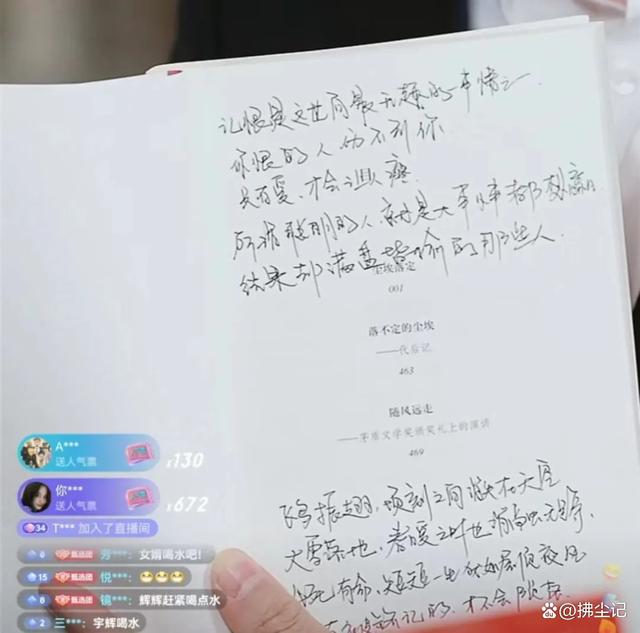 记恨是这世间最无趣的事情之一
你恨的人伤不到你
只有爱、才会让人疼
所谓聪明的人就是大事小事都想赢
结果却满盘皆输的那些人.
尘埃落定
001
落不定的尘埃
——代后记
463
随风远走
——茅盾文学奖颁奖礼上的演讲
469
振翅,顷刻之间消失在天空
大雪落地,春暖之时也消融无踪.
有命,短短一生
记的,才不会
A***
送人气票
x130
你***
送人气票
x672
34 T*** 加入了直播间
0 甄选团 芳***: 女婿喝水吧!
15 甄选团 悦***: 😁😁😁
0 甄选团 镜***: 辉辉赶紧喝点水
2 三***: 宇辉喝水
拂尘记